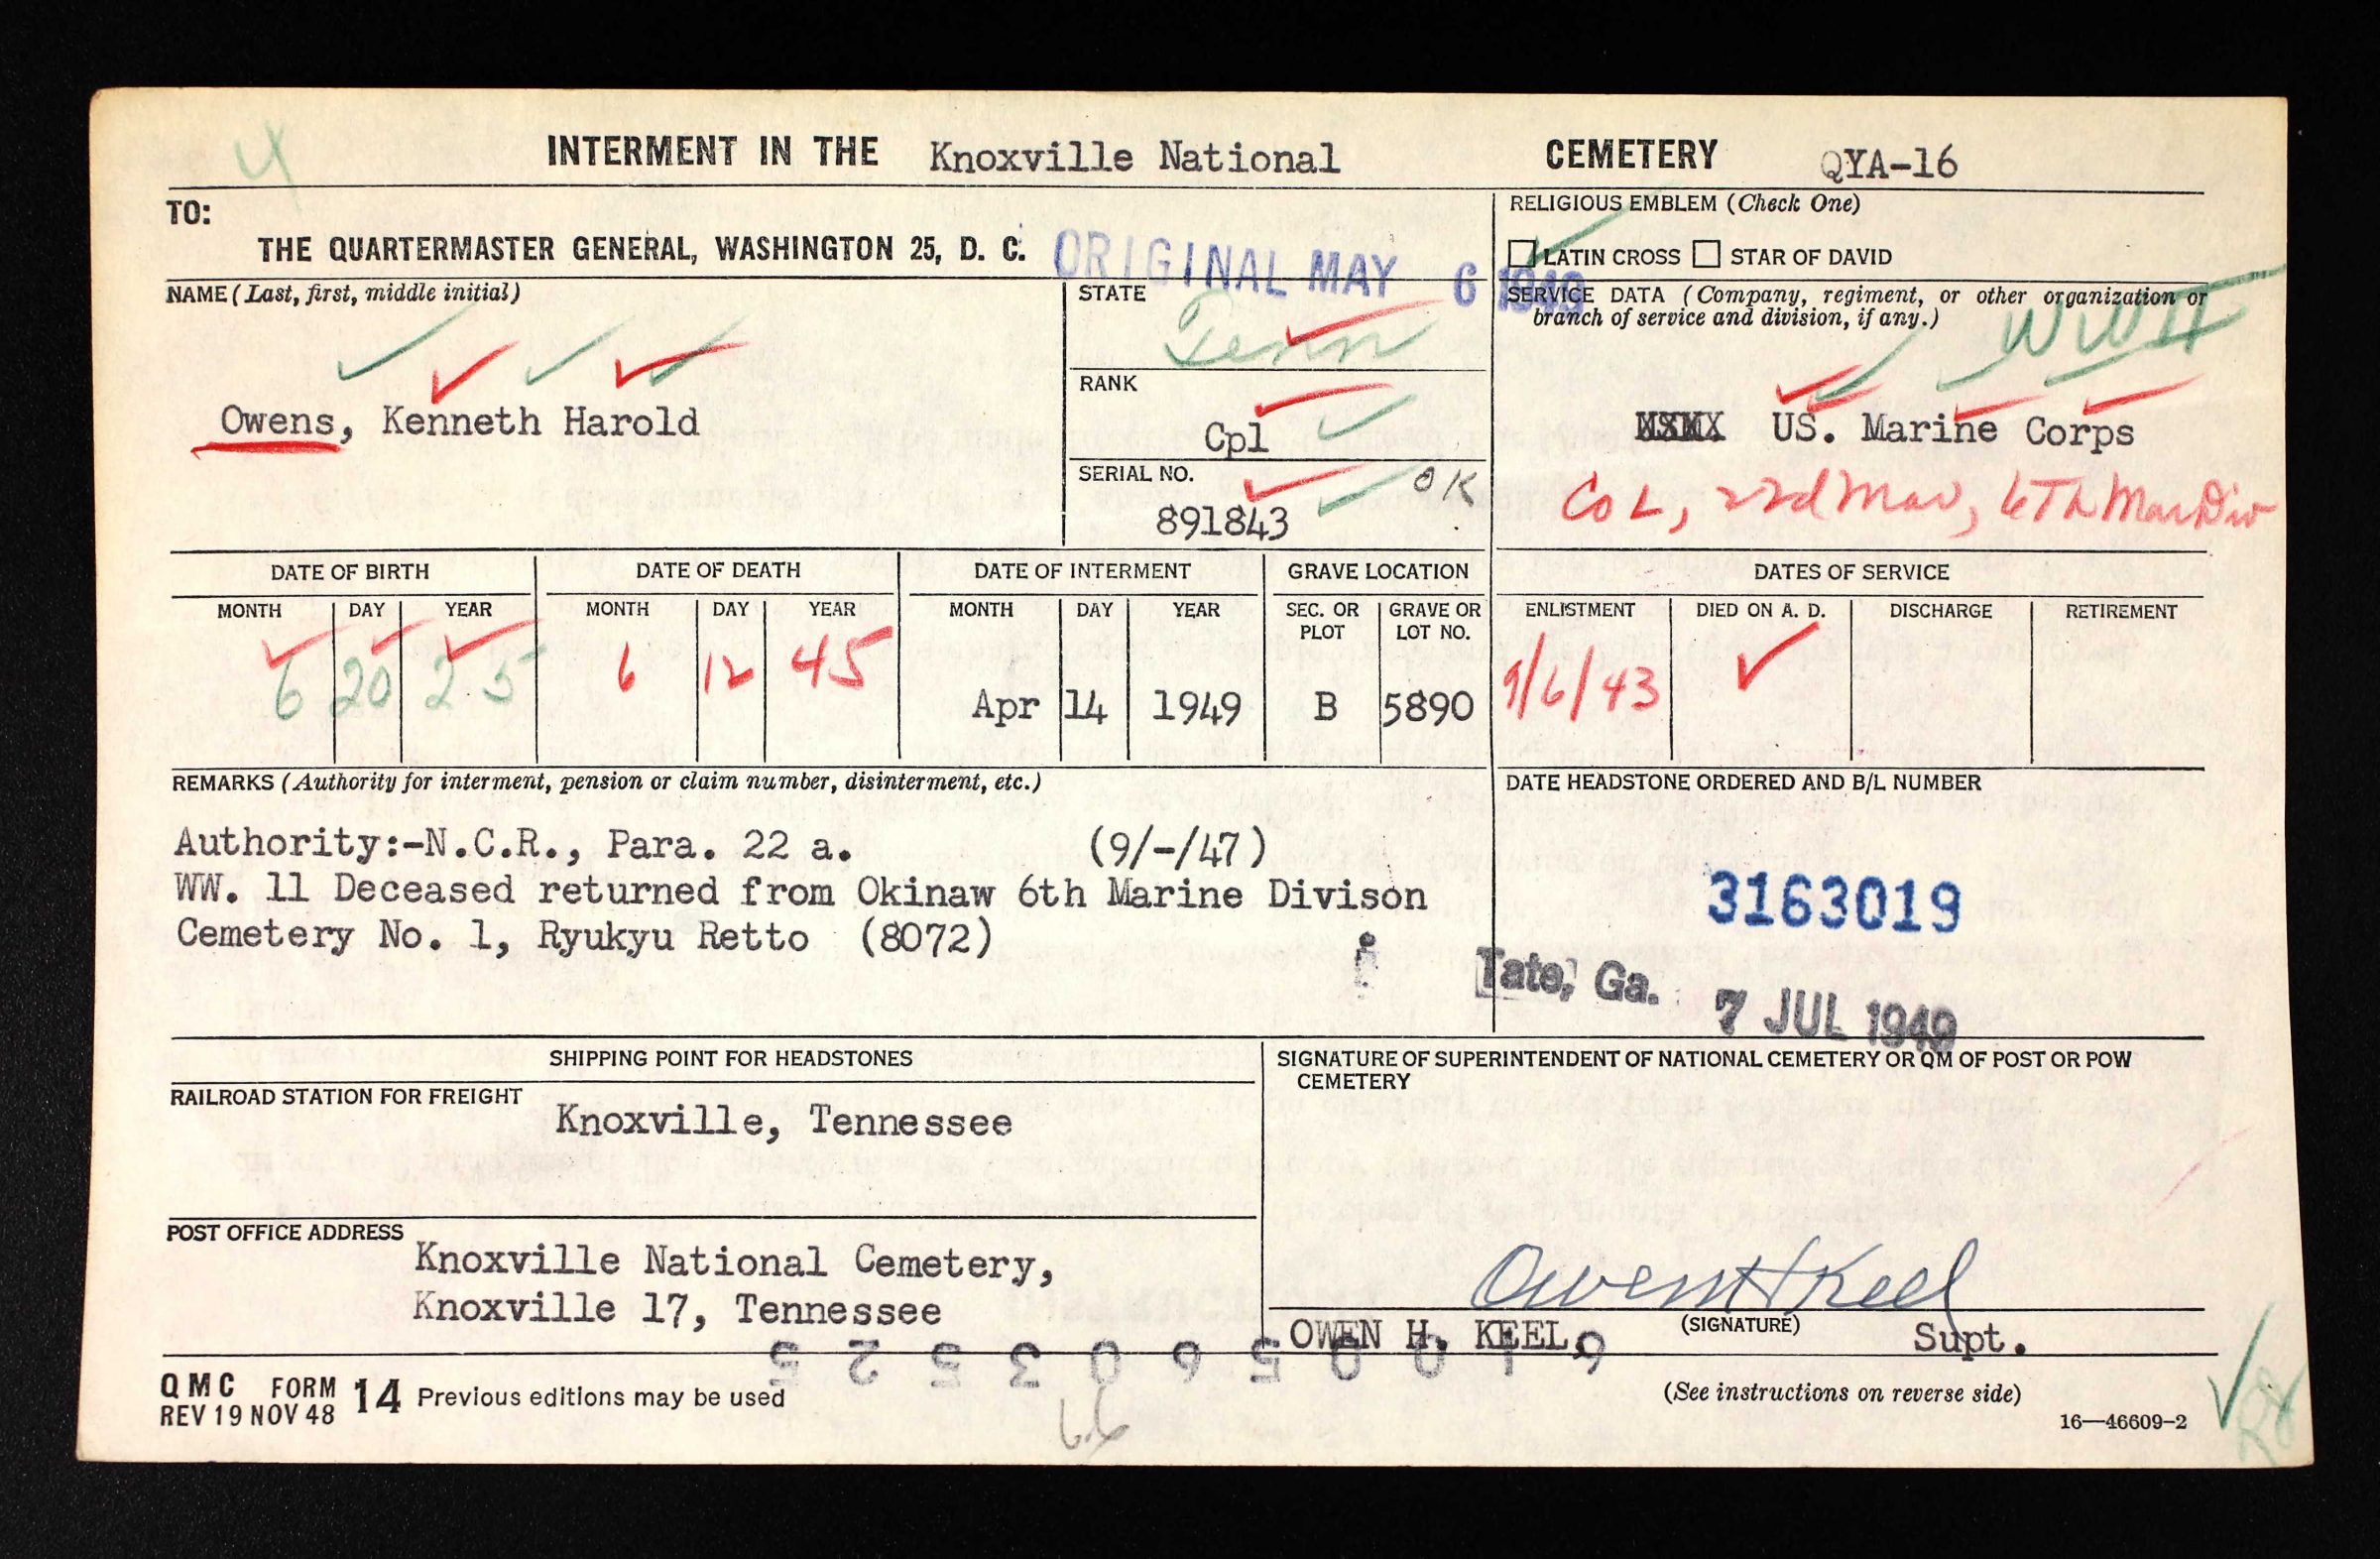 INTERMENT IN THE Knoxville National CEMETERY QYA-16
TO:
THE QUARTERMASTER GENERAL, WASHINGTON 25, D. C.
ORIGINAL MAY 6 1949
RELIGIOUS EMBLEM (Check One)
LATIN CROSS STAR OF DAVID
NAME (Last, first, middle initial)
Owens, Kenneth Harold
STATE
Tenn
RANK
Cpl
SERIAL NO.
OK
891843
SERVICE DATA (Company, regiment, or other organization or
branch of service and division, if any.)
WWII
US. Marine Corps
Co L, 22d Mar, 6th Mar Div
DATE OF BIRTH DATE OF DEATH DATE OF INTERMENT GRAVE LOCATION DATES OF SERVICE
MONTH DAY YEAR MONTH DAY YEAR MONTH DAY YEAR SEC. OR PLOT GRAVE OR LOT NO. ENLISTMENT DIED ON A. D. DISCHARGE RETIREMENT
6 20 25 6 12 45 Apr 14 1949 B 5890 9/6/43
REMARKS (Authority for interment, pension or claim number, disinterment, etc.)
Authority:-N.C.R., Para. 22 a. (9/-/47)
WW. 11 Deceased returned from Okinaw 6th Marine Divison
Cemetery No. 1, Ryukyu Retto (8072)
DATE HEADSTONE ORDERED AND B/L NUMBER
3163019
Tate, Ga.
7 JUL 1949
SHIPPING POINT FOR HEADSTONES
RAILROAD STATION FOR FREIGHT
Knoxville, Tennessee
POST OFFICE ADDRESS
Knoxville National Cemetery,
Knoxville 17, Tennessee
SIGNATURE OF SUPERINTENDENT OF NATIONAL CEMETERY OR QM OF POST OR POW
CEMETERY
Owen H Keel
(SIGNATURE)
OWEN H. KEEL, Supt.
QMC FORM 14 Previous editions may be used
REV 19 NOV 48
(See instructions on reverse side)
16—46609-2